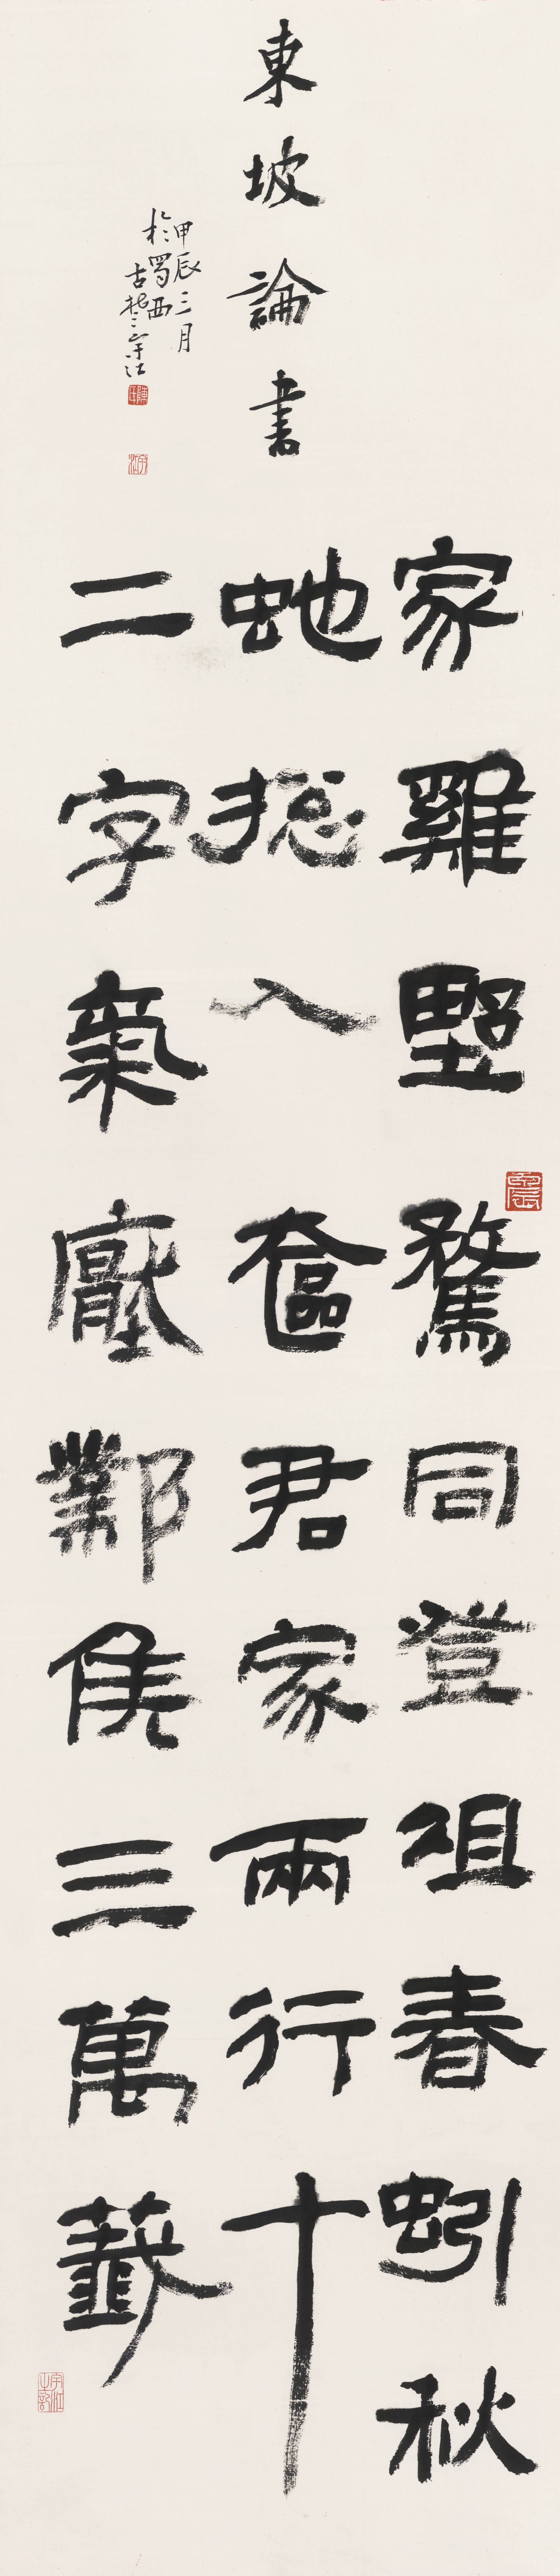 東坡論書
家雞野鶩同登俎春蚓秋
虵摠入奩君家兩行十
二字氣壓鄴侯三萬籤
甲辰三月
於蜀西
古宇江